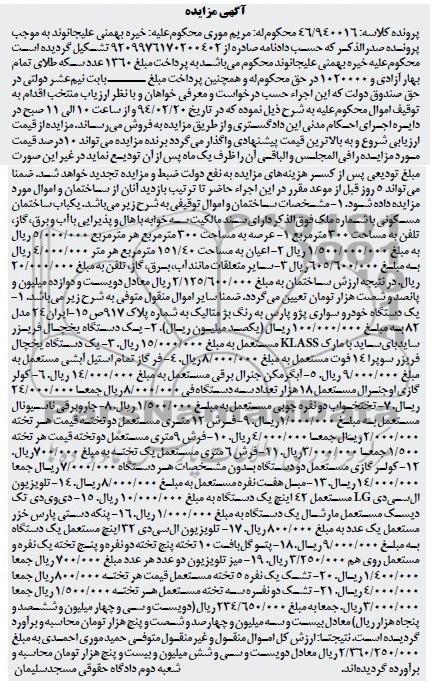 آگهی مزایده
پرونده کلاسه: ۴۶/۹۴۰۰۱۶ محکوم‌له: مریم موری محکوم‌علیه: خیره بهمنی علیجانوند به موجب
پرونده صدرالذکر که حسب دادنامه صادره از ۹۲۰۹۹۷۶۱۷۰۲۰۰۴۰۲ تشکیل گردیده است
محکوم‌علیه خیره بهمنی علیجانوند محکوم می‌باشد به پرداخت مبلغ ۱۳۶۰ عدد سکه طلای تمام
بهار آزادی و ۱۰۲۰۰۰۰ در حق محکوم‌له و همچنین پرداخت مبلغ ـــــ بابت نیم‌عشر دولتی در
حق صندوق دولت که این اجراء حسب درخواست و معرفی خواهان و با نظر ارزیاب منتخب اقدام به
توقیف اموال محکوم‌علیه به شرح ذیل نموده که در تاریخ ۹۴/۰۲/۲۰ و از ساعت ۱۰ الی ۱۱ صبح در
دایره اجرای احکام مدنی این دادگستری و از طریق مزایده به فروش می‌رساند. مزایده از قیمت
ارزیابی شروع و به بالاترین قیمت پیشنهادی واگذار می‌گردد برنده مزایده می‌تواند ۱۰ درصد قیمت
مورد مزایده را فی‌المجلس و الباقی آن را ظرف یک ماه پس از آن تودیع نماید در غیر این صورت
مبلغ تودیعی پس از کسر هزینه‌های مزایده به نفع دولت ضبط و مزایده تجدید خواهد شد. ضمنا
می‌تواند ۵ روز قبل از موعد مقرر در این اجراء حاضر تا ترتیب بازدید آنان از ساختمان و اموال مورد
مزایده داده شود. ۱- مشخصات ساختمان و اموال توقیفی به شرح زیر می‌باشد. یکباب ساختمان
مسکونی با شماره ملک فوق‌الذکر دارای سند مالکیت سه خوابه با هال و پذیرایی با آب و برق، گاز،
تلفن به مساحت ۳۰۰ مترمربع ۱- عرصه به مساحت ۳۰۰ مترمربع هر مترمربع ۵/۰۰۰/۰۰۰ ریال
به مبلغ ۱/۵۰۰/۰۰۰/۰۰۰ ریال ۲- اعیان به مساحت ۱۵۱/۴۰ مترمربع هر متر ۴/۰۰۰/۰۰۰ ریال
به مبلغ ۶۰۵/۶۰۰/۰۰۰ ریال ۳- سایر متعلقات مانند آب، برق، گاز، تلفن به مبلغ ۲۰/۰۰۰/۰۰۰
ریال. در نتیجه ارزش ساختمان به مبلغ ۲/۱۲۵/۶۰۰/۰۰۰ ریال معادل دویست و دوازده میلیون و
پانصد و شصت هزار تومان تعیین می‌گردد. ضمنا سایر اموال منقول متوفی به شرح زیر می‌باشد. ۱-
یک دستگاه خودرو سواری پژو پارس به رنگ بژ متالیک به شماره پلاک ۹۱۷ص۱۵- ایران ۲۴ مدل
۸۲ به مبلغ ۱۰۰/۰۰۰/۰۰۰ ریال (یکصد میلیون ریال). ۲- یک دستگاه یخچال فریزر
ساید‌بای‌ساید با مارک KLASS مستعمل به مبلغ ۱۵/۰۰۰/۰۰۰ ریال. ۳- یک دستگاه یخچال
فریزر سوپرا ۱۴ فوت مستعمل به مبلغ ۸/۰۰۰/۰۰۰ ریال. ۴- فر گاز تمام استیل آبشی مستعمل به
مبلغ ۹/۰۰۰/۰۰۰ ریال. ۵- آبگرمکن جنرال برقی مستعمل به مبلغ ۱۴/۰۰۰/۰۰۰ ریال. ۶- کولر
گازی اوجنرال مستعمل ۱۸ هزار تعداد سه دستگاه فی ۸/۰۰۰/۰۰۰ ریال جمعا ۲۴/۰۰۰/۰۰۰
ریال. ۷- تختخواب دو نفره چوبی مستعمل به مبلغ ۱/۵۰۰/۰۰۰ ریال. ۸- جاروبرقی ناسیونال
مستعمل به مبلغ ریال. ۹- فرش ۱۲ متری مستعمل دو تخته قیمت هر تخته
ریال جمعا ۴/۰۰۰/۰۰۰ ریال. ۱۰- فرش ۹ متری مستعمل دو تخته قیمت هر تخته
جمعا ۳/۰۰۰/۰۰۰ ریال. ۱۱- فرش ۶ متری مستعمل یک تخته به مبلغ ۷۰۰/۰۰۰ ریال.
۱۲- کولر گازی مستعمل دو دستگاه بدون مشخصات هر دستگاه ۷/۰۰۰/۰۰۰ ریال جمعا
۱۴/۰۰۰/۰۰۰ ریال. ۱۳- مبل هفت نفره مستعمل به مبلغ ۸/۰۰۰/۰۰۰ ریال. ۱۴- تلویزیون
ال‌سی‌دی LG مستعمل ۴۲ اینچ یک دستگاه به مبلغ ۱۰/۰۰۰/۰۰۰ ریال. ۱۵- دی‌وی‌دی تک
دیسک مستعمل مارشال یک دستگاه به مبلغ ۱/۰۰۰/۰۰۰ ریال. ۱۶- پنکه دستی پارس خزر
مستعمل یک عدد به مبلغ ۸۰۰/۰۰۰ ریال. ۱۷- تلویزیون ال‌سی‌دی ۳۲ اینچ مستعمل یک دستگاه
به مبلغ ۹/۰۰۰/۰۰۰ ریال. ۱۸- پتو گل‌بافت ۱۰ تخته پنج تخته دو نفره و پنج تخته یک نفره و
مستعمل روی هم ۳/۲۵۰/۰۰۰ ریال. ۱۹- میز تلویزیون دو عدد هر عدد مبلغ ۷۰۰/۰۰۰ ریال جمعا
۱/۴۰۰/۰۰۰ ریال. ۲۰- تشک یک نفره ۵ تخته مستعمل قیمت هر تخته ۸۰۰/۰۰۰ ریال جمعا
۴/۰۰۰/۰۰۰ ریال. ۲۱- تشک دو نفره سه تخته مستعمل هر تخته ۱/۵۰۰/۰۰۰ ریال جمعا
۳/۰۰۰/۰۰۰ ریال. جمعا به مبلغ ۲۳۴/۶۵۰/۰۰۰ ریال (دویست و سی و چهار میلیون و ششصد و
پنجاه هزار ریال) معادل بیست و سه میلیون و چهارصد و شصت و پنج هزار تومان محاسبه و برآورد
گردیده است. نتیجتا: ارزش کل اموال منقول و غیر منقول متوفی حمید موری احمدی به مبلغ
۲/۳۶۰/۲۵۰/۰۰۰ ریال معادل دویست و سی و شش میلیون و بیست و پنج هزار تومان محاسبه و
برآورده گردیده‌اند. شعبه دوم دادگاه حقوقی مسجدسلیمان